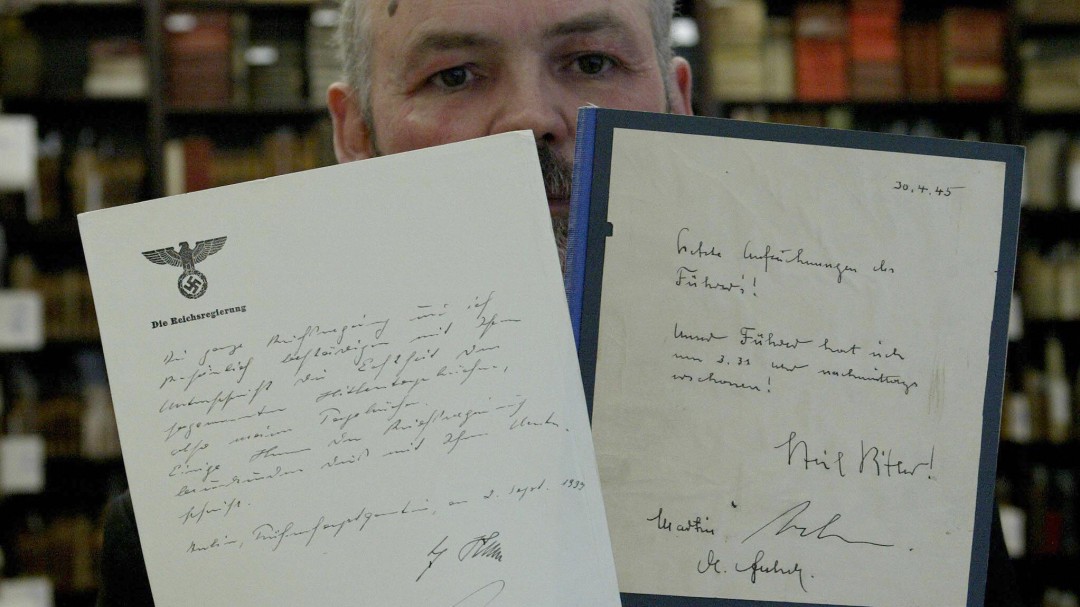 Die Reichsregierung
Die ganze Reichsregierung und ich
persönlich bestätigen mit Ihrer
Unterschrift die Echtheit der
sogenannten Hitlertagebücher,
also meiner Tagebücher.
Einige Herren der Reichsregierung
beurkunden dies mit Ihrer Unter-
schrift.
Berlin, am 2. Sept. 1939
30.4.45
Letzte Aufzeichnungen des
Führers!
Unser Führer hat sich
um Uhr nachmittags
erschossen!
Heil Hitler!
Martin
Dr.